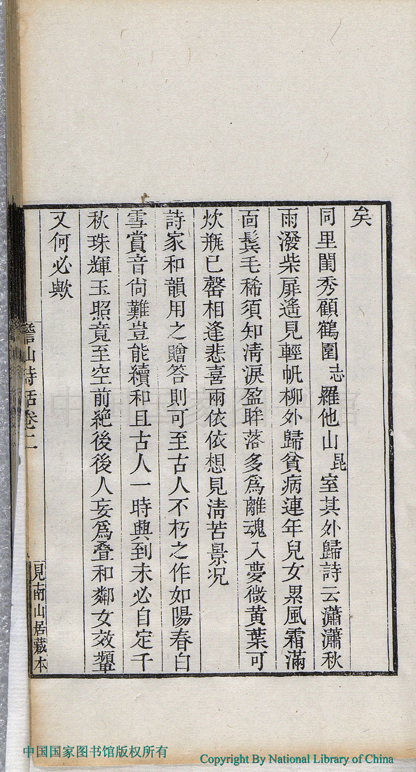 矣
同里閨秀顧鶴圃志羅他山昆室其外歸詩云瀟瀟秋
雨潑柴扉遙見輕帆柳外歸貧病連年兒女累風霜滿
面鬓毛稀須知淸淚盈眸落多爲離魂入夢微黃葉可
炊瓶已罄相逢悲喜兩依依想見淸苦景况
詩家和韻用之贈答則可至古人不朽之作如陽春白
雪賞音尙難豈能續和且古人一時興到未必自定千
秋珠輝玉照竟至空前絶後後人妄爲叠和鄰女效颦
又何必歟
詹山詩話卷二
見南山居藏本
中国国家图书馆版权所有
Copyright By National Library of China